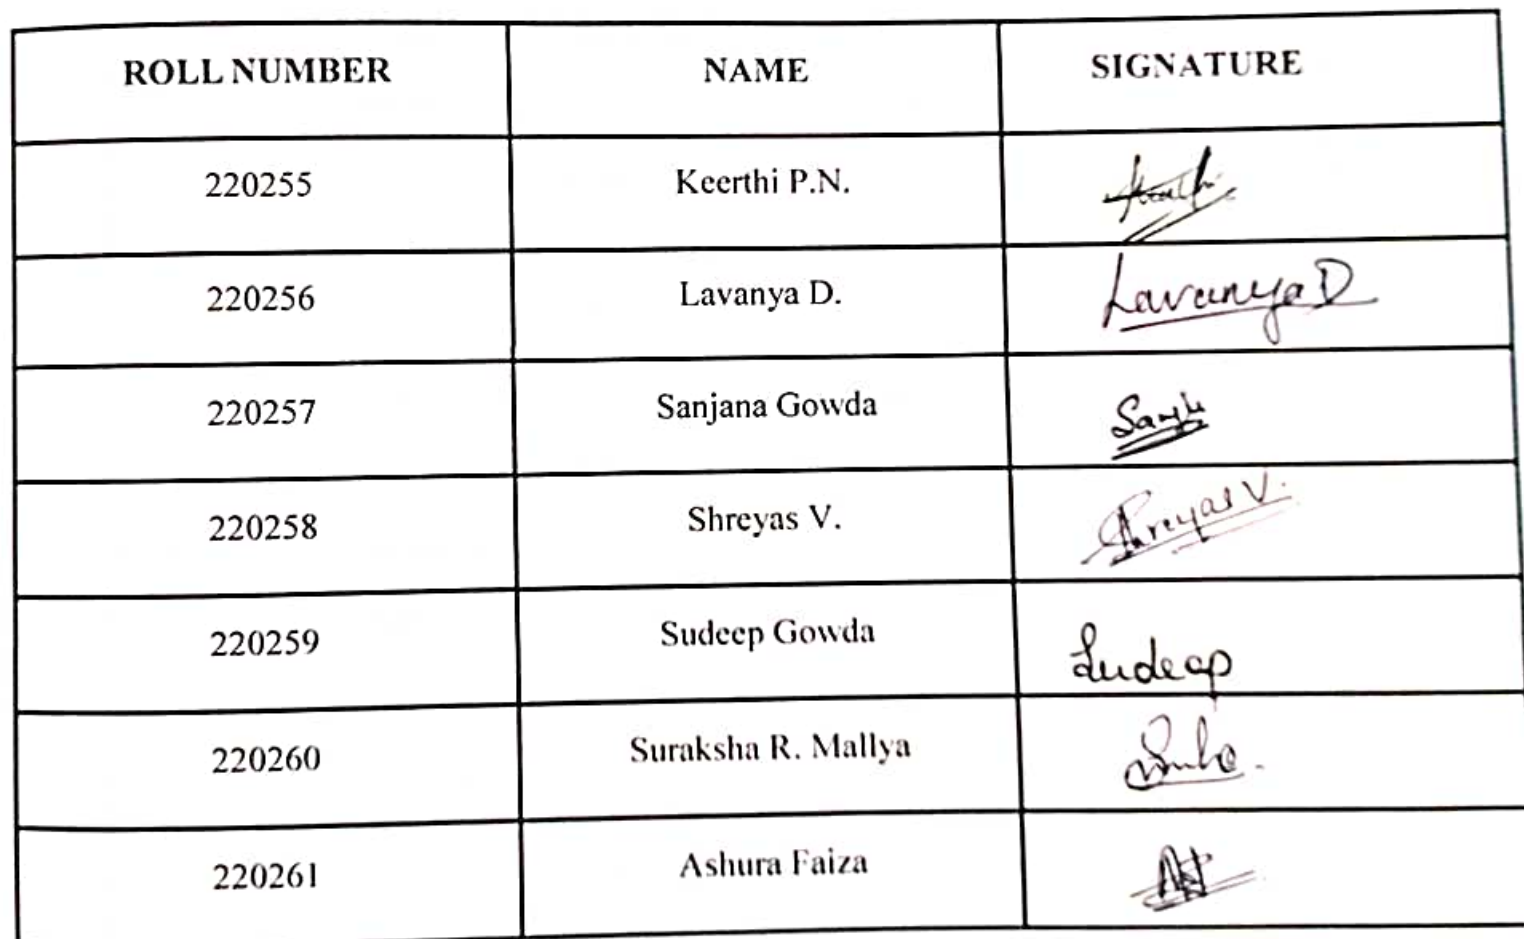 ROLL NUMBER NAME SIGNATURE
220255 Keerthi P.N.
220256 Lavanya D. Lavanya D
220257 Sanjana Gowda
220258 Shreyas V. Shreyas V.
220259 Sudeep Gowda Sudeep
220260 Suraksha R. Mallya
220261 Ashura Faiza